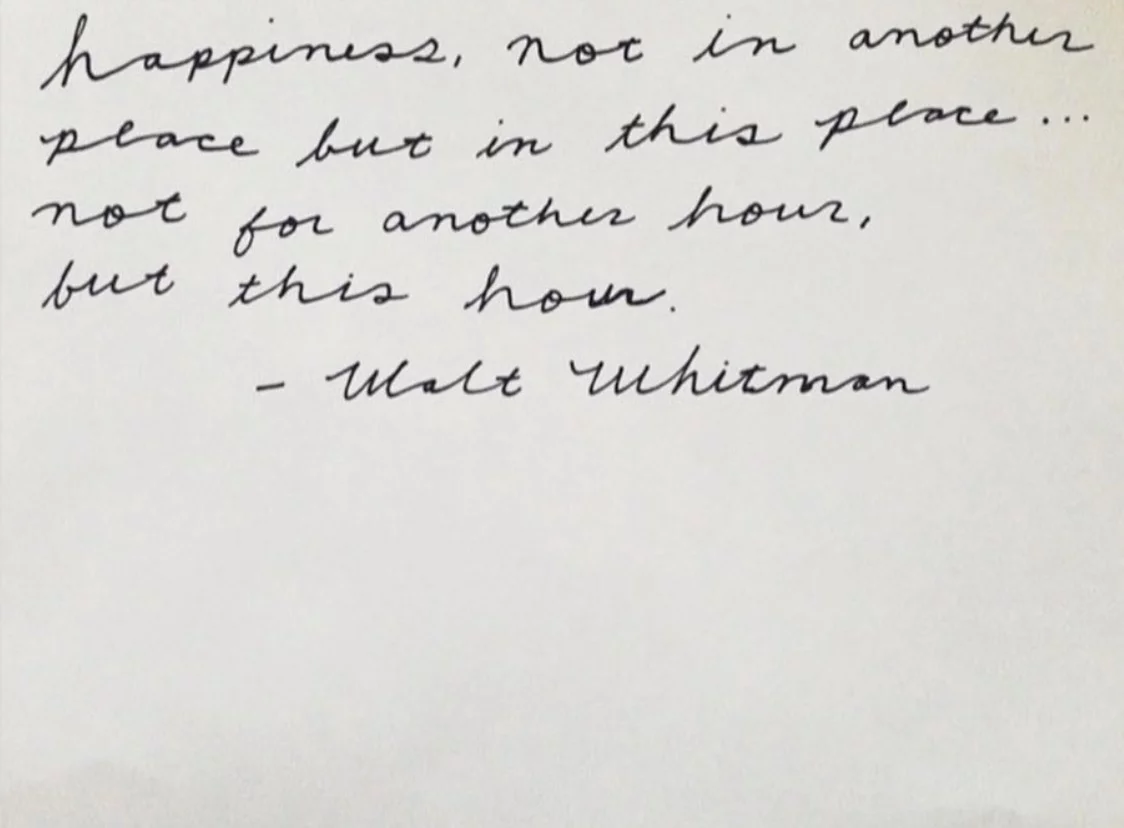 happiness, not in another
place but in this place...
not for another hour,
but this hour.
- Walt Whitman